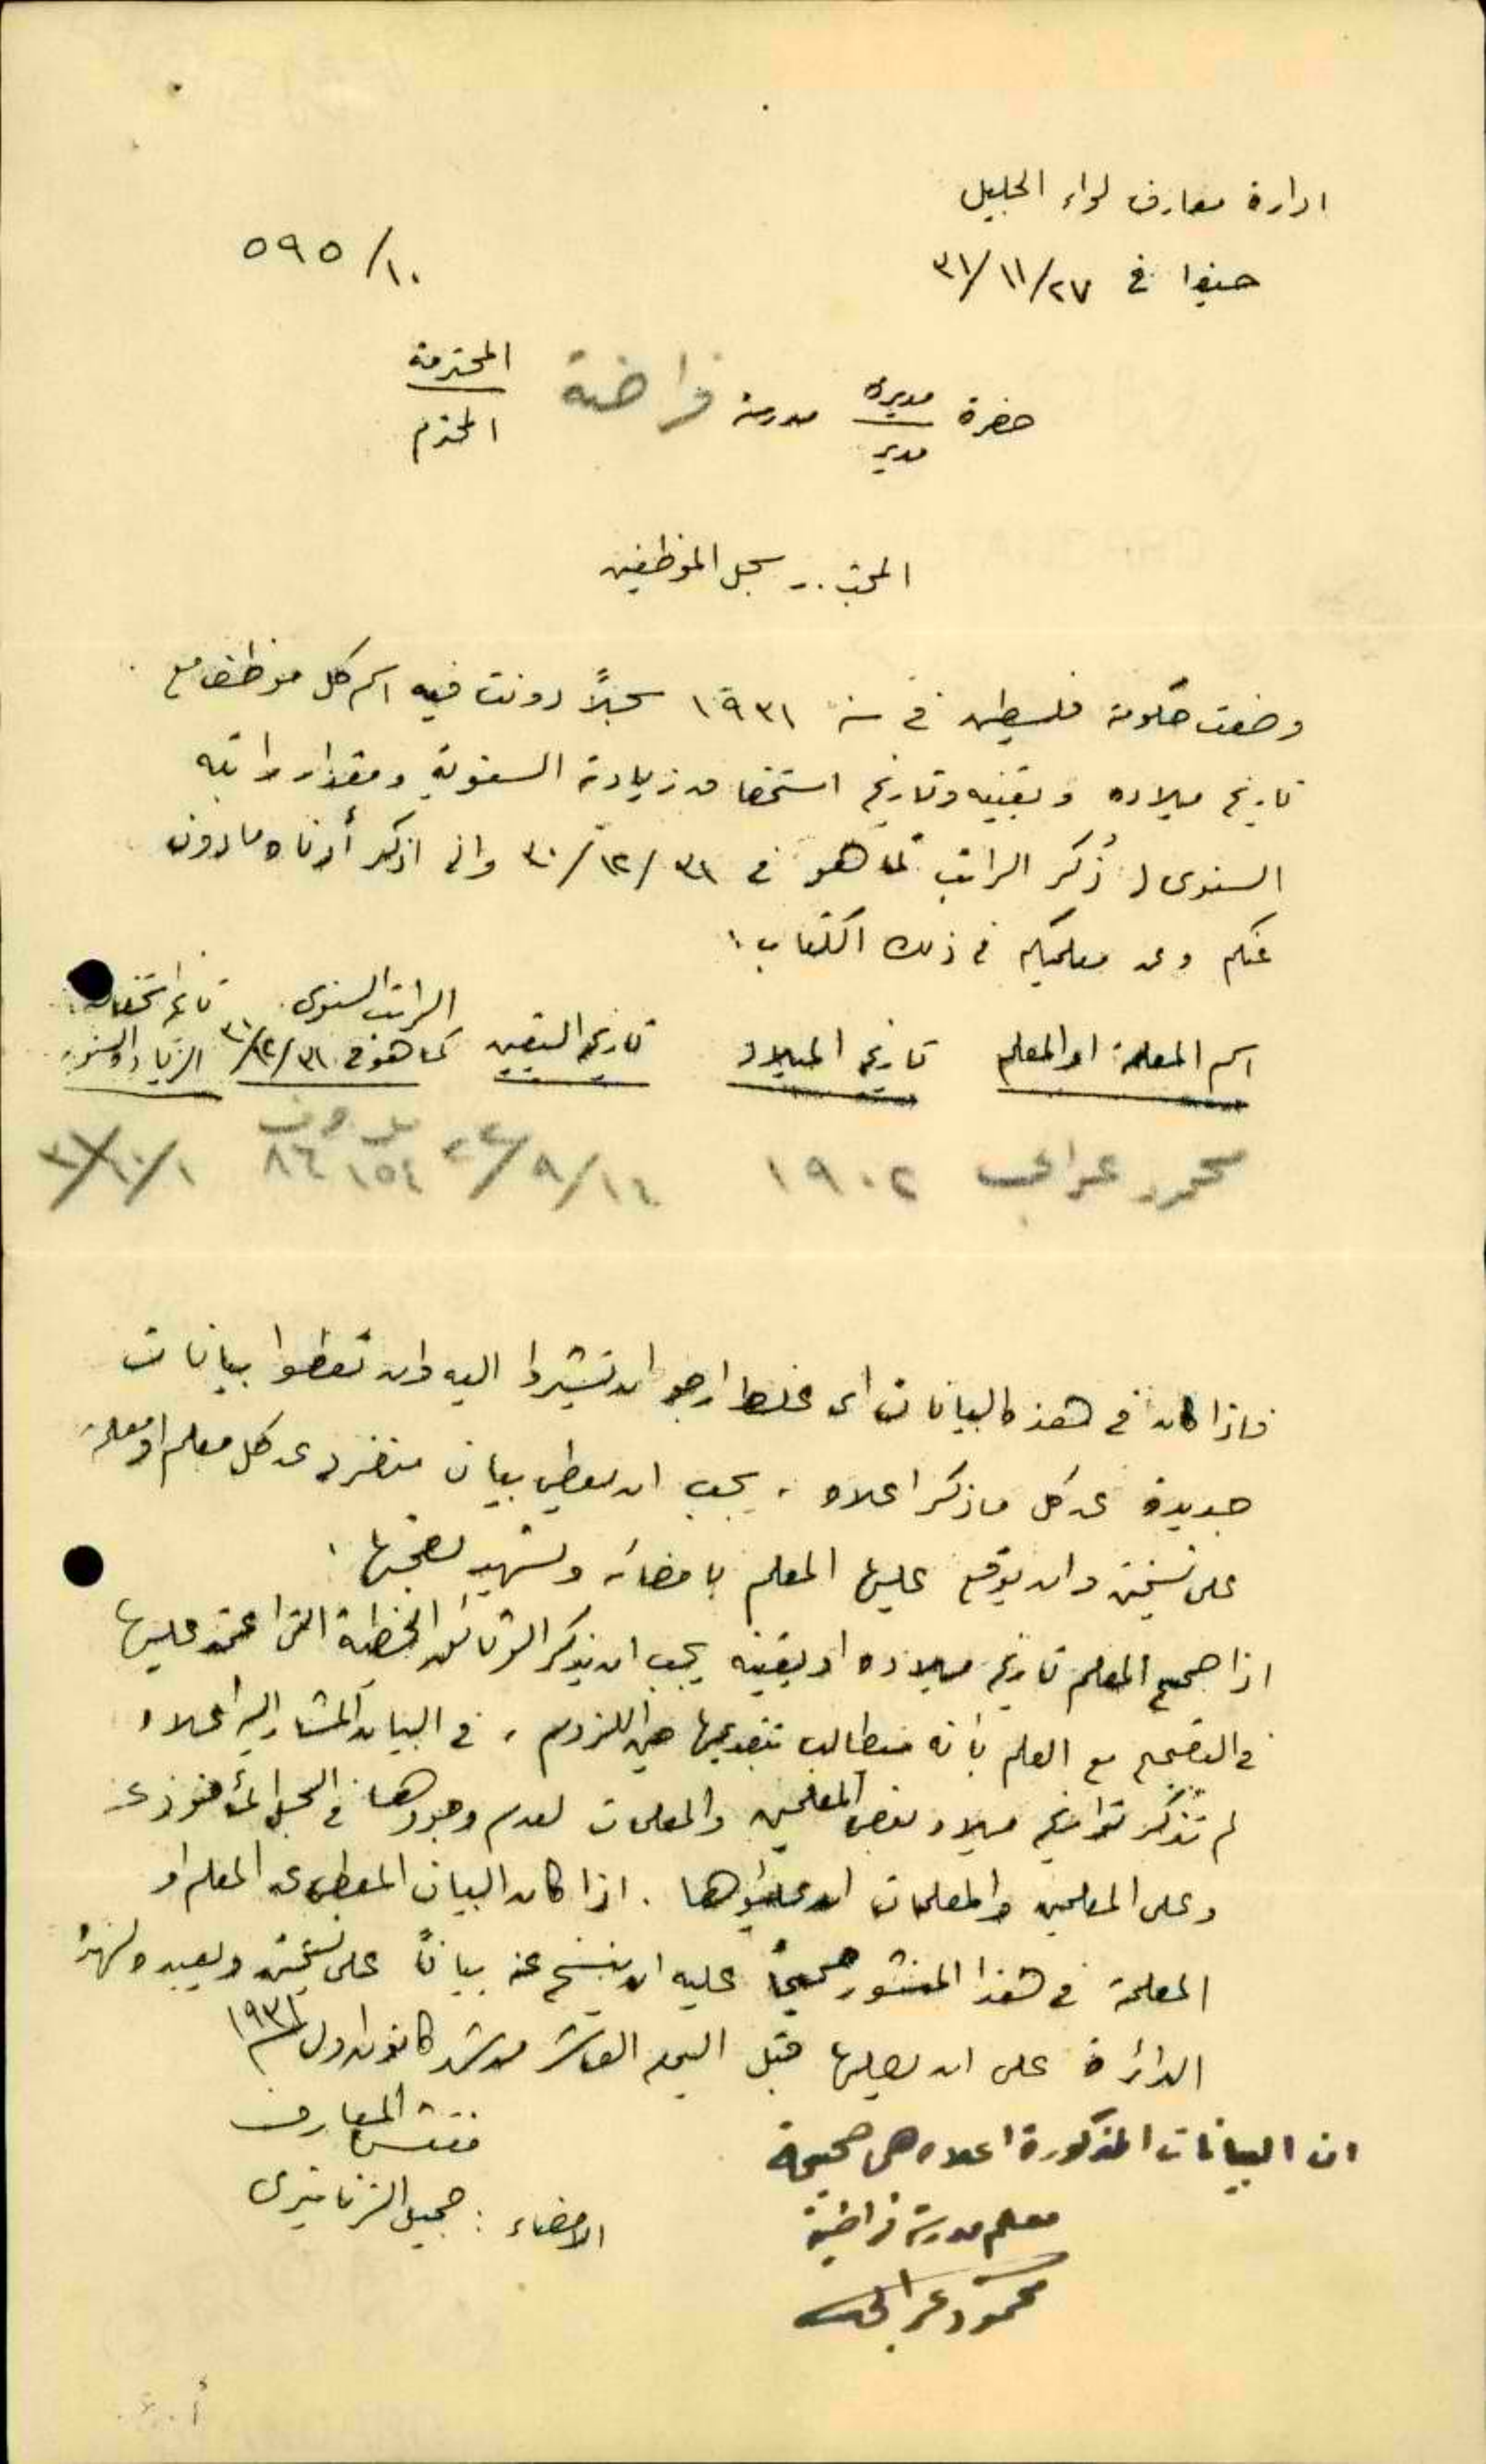 ادارة معارف لواء الجليل
حيفا في ٢٧/١١/٣١
١٠/٥٩٥
حضرة مديرة مدرسة فراضية المحترمة
مدير المحترم
المبحث .. سجل الموظفين
وضعت حكومة فلسطين في سنة ١٩٣١ سجلاً دونت فيه اسم كل موظف مع
تاريخ ميلاده وتعيينه وتاريخ استحقاقه زيادته السنوية ومقدار راتبه
السنوي ( ذُكر الراتب كما هو في ٣١/١٢/٣٠ واني اذكر أدناه ما دون
عنكم وعن معلميكم في ذلك الكتاب :
اسم المعلمة او المعلم تاريخ الميلاد تاريخ التعيين الراتب السنوي كما هو في ٣١/١٢/٣٠ تاريخ استحقاقه الزيادة السنوية
محمود عرابي ١٩٠٢ ١٦/٩/٢٤ ٨٤
فاذا كان في هذه البيانات اي غلط ارجو ان تشيروا اليه وان تعطوا بيانات
جديدة عن كل ما ذكر اعلاه ، يجب ان يعطى بيان منفرد عن كل معلم او معلمة
على نسختين وان يوقع عليها المعلم بامضائه وتشهد بصحتها .
اذا صحح المعلم تاريخ ميلاده او تعيينه يجب ان يذكر الوثائق الخطية التي اعتمد عليها
في التصحيح مع العلم بأنه سيطالب بتقديمها حين اللزوم ، في البيان المشار اليه اعلاه
لم تذكر تواريخ ميلاد بعض المعلمين والمعلمات لعدم وجودها في السجل المأخوذ عنه
وعلى المعلمين والمعلمات ان يعطوها . اذا كان البيان المعطى عن المعلم او
المعلمة في هذا المنشور صحيحاً عليه ان ينسخ عنه بياناً على نسختين ويعيده لهذه
الدائرة على ان يصلها قبل اليوم العاشر من شهر كانون اول سنة ١٩٣١
مفتش المعارف
الامضاء : جميل الزناتيري
ان البيانات المذكورة اعلاه هي صحيحة
معلم مدرسة فراضية
محمود عرابي